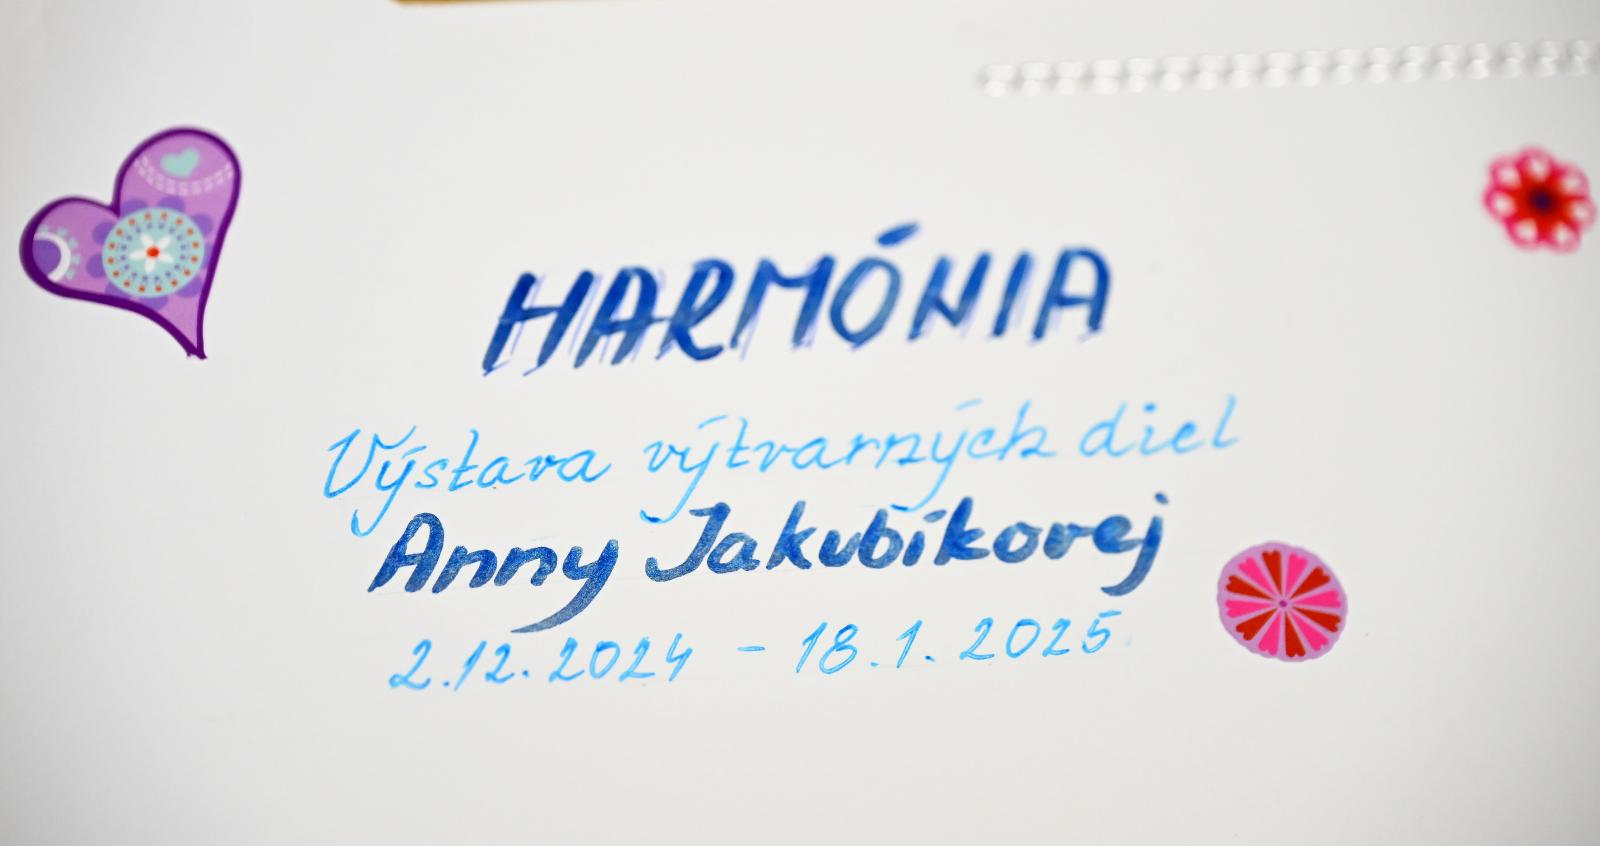 HARMÓNIA
Výstava výtvarných diel
Anny Jakubíkovej
2.12.2024 - 18.1.2025